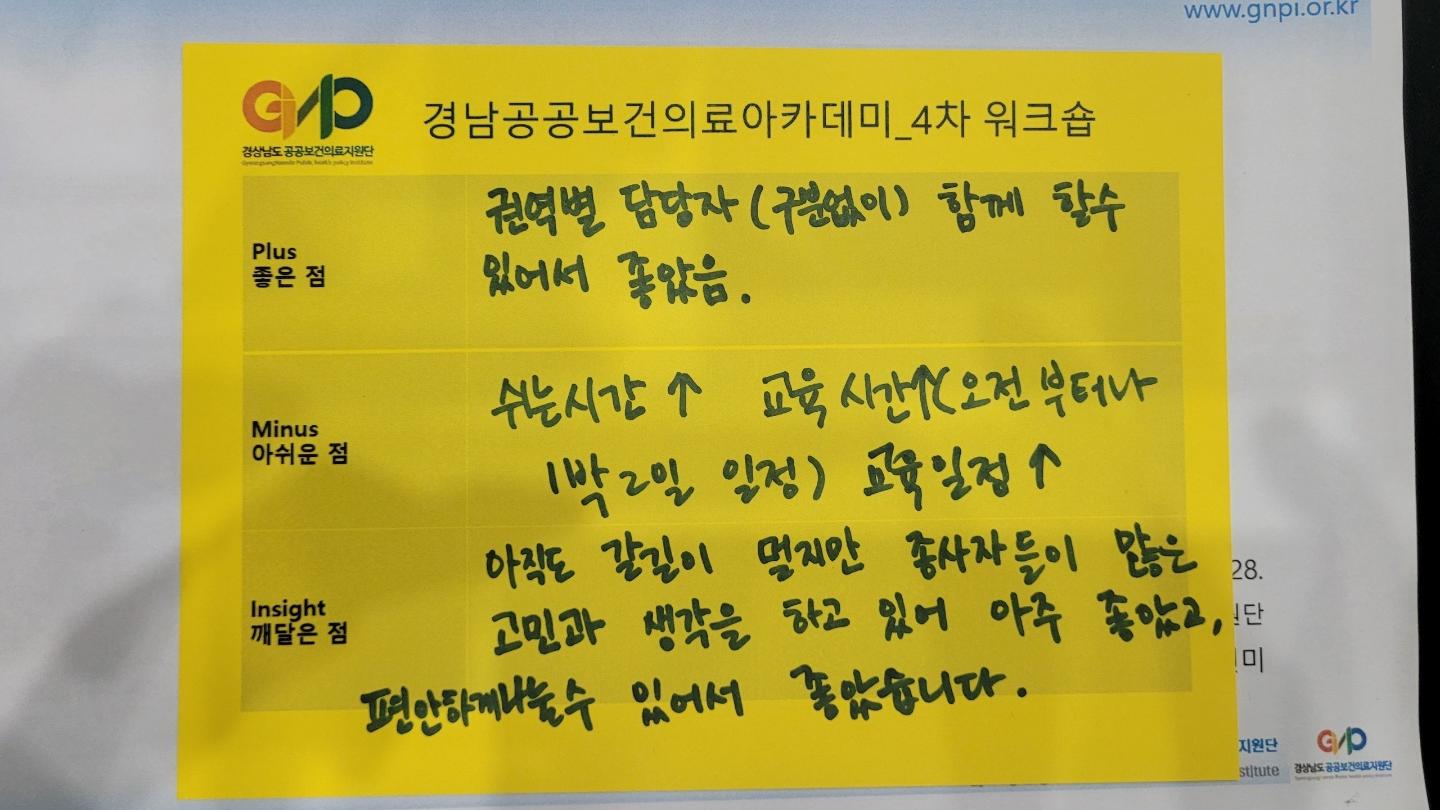 www.gnpi.or.kr
경상남도 공공보건의료지원단
경남공공보건의료아카데미_4차 워크숍
Plus
좋은 점
권역별 담당자 (구분없이) 함께 할수
있어서 좋았음.
Minus
아쉬운 점
쉬는시간 ↑ 교육 시간↑(오전 부터나
1박 2일 일정) 교육일정 ↑
Insight
깨달은 점
아직도 갈길이 멀지만 종사자들이 많은
고민과 생각을 하고 있어 아주 좋았고,
편안하게나눌수 있어서 좋았습니다.
28.
원단
미
지원단
stitute
경상남도 공공보건의료지원단